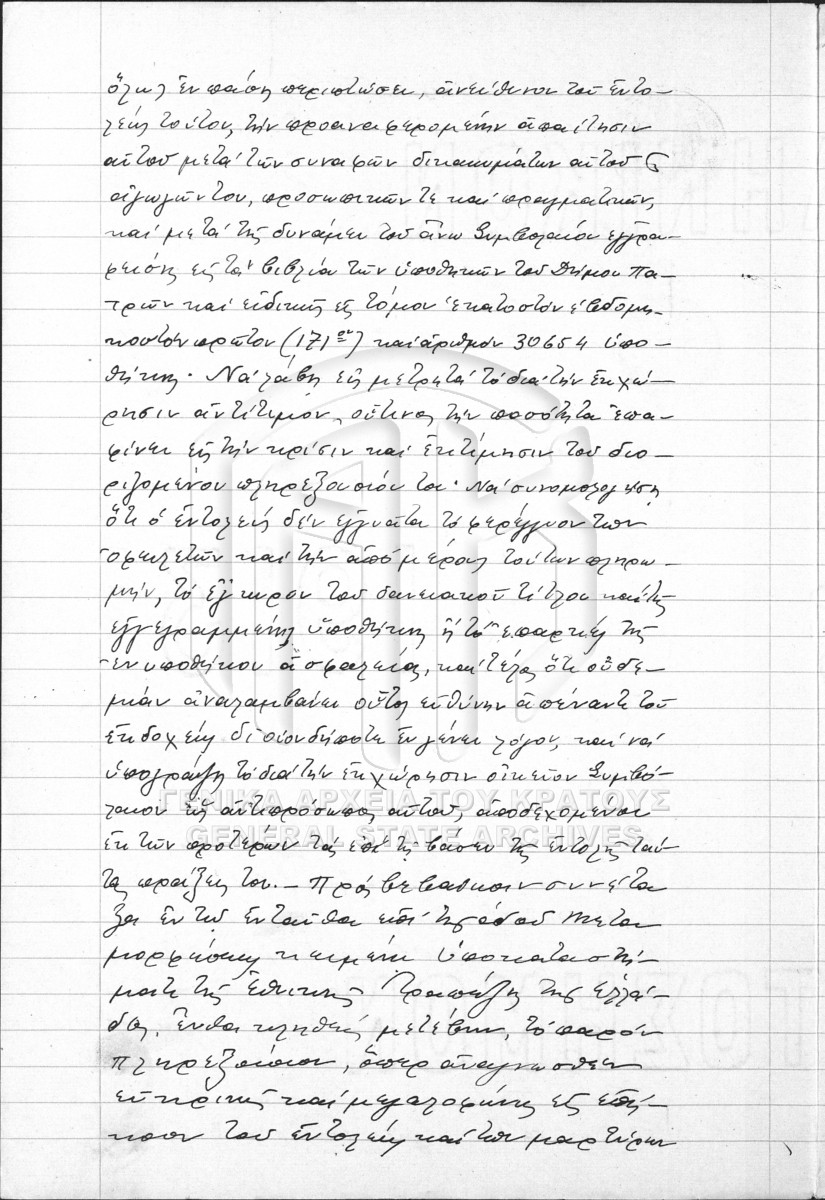 ὅλως ἐν πάσῃ περιπτώσει, ἀνευθύνου τοῦ ἐντο-
λέως τούτου, τὴν προαναφερομένην ἀπαίτησιν
αὐτοῦ μετὰ τῶν συναφῶν δικαιωμάτων αὐτοῦ &
ἀγωγῶν του, προσωπικῶν τε καὶ πραγματικῶν,
καὶ μετὰ τῆς δυνάμει τοῦ ἄνω Συμβολαίου ἐγγρα-
φείσης εἰς τὰ βιβλία τῶν ὑποθηκῶν τοῦ Δήμου Πα-
τρῶν καὶ εἰδικῶς εἰς τόμον ἑκατοστὸν ἑβδομη-
κοστὸν πρῶτον (171ον) καὶ ἀριθμὸν 30654 ὑπο-
θήκης· Νὰ λάβῃ εἰς μετρητὰ τὸ διὰ τὴν ἐκχώ-
ρησιν ἀντίτιμον, οὗτινος τὴν ποσότητα ἐπα-
φίνει εἰς τὴν κρίσιν καὶ ἐκτίμησιν τοῦ διο-
ριζομένου πληρεξουσίου του· Νὰ συνομολογήσῃ
ὅτι ὁ ἐντολεὺς δὲν ἐγγυᾶται τὸ φερέγγυον των
ὀφειλετῶν καὶ τὴν ἀπὸ μέρους τούτων πληρω-
μήν, τὸ ἔγκυρον τοῦ δανειακοῦ τίτλου καὶ τῆς
ἐγγεγραμμένης ὑποθήκης ἢ τὸ ἐπαρκὲς τῆς
ἐνυποθήκου ἀσφαλείας, καὶ τέλος ὅτι οὐδε-
μίαν ἀναλαμβάνει οὗτος εὐθύνην ἀπέναντι τοῦ
ἐκδοχέως δι' οἱονδήποτε ἐν γένει λόγον, καὶ νὰ
ὑπογράψῃ τὸ διὰ τὴν ἐκχώρησιν οἰκεῖον Συμβό-
λαιον ὡς ἀντιπρόσωπος αὐτοῦ, ἀποδεχομένου
ἐκ τῶν προτέρων τὰς ἐπὶ τῇ βάσει τῆς ἐντολῆς ταύ-
της πράξεις του.— Πρὸς βεβαίωσιν συνέτα-
ξα ἐν τῷ ἐνταῦθα ἐπὶ τῆς ὁδοῦ Μετα
μορφώσεως κειμένῳ ὑποκαταστή-
ματι τῆς Ἐθνικῆς Τραπέζης τῆς Ἑλλά-
δος, ἔνθα κληθεὶς μετέβην, τὸ παρὸν
πληρεξούσιον, ὅπερ ἀναγνωσθὲν
εὐκρινῶς καὶ μεγαλοφώνως εἰς ἐπή-
κοον τοῦ ἐντολέως καὶ τῶν μαρτύρων
ΓΕΝΙΚΑ ΑΡΧΕΙΑ ΤΟΥ ΚΡΑΤΟΥΣ
GENERAL STATE ARCHIVES